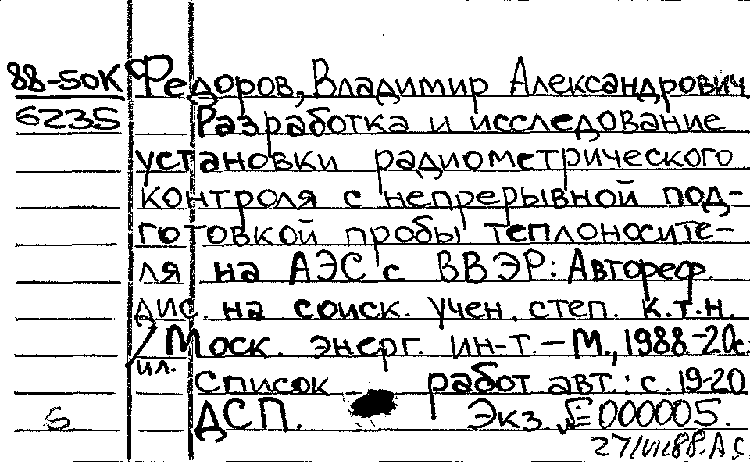 88-50К Федоров, Владимир Александрович
6235 Разработка и исследование
установки радиометрического
контроля с непрерывной под-
готовкой пробы теплоносите-
ля на АЭС с ВВЭР: Автореф.
дис. на соиск. учен. степ. к.т.н.
/ Моск. энерг. ин-т. - М., 1988 - 20с.
ил.
Список работ авт.: с. 19-20
Б ДСП. Экз. № 000005.
27/VII88. А С